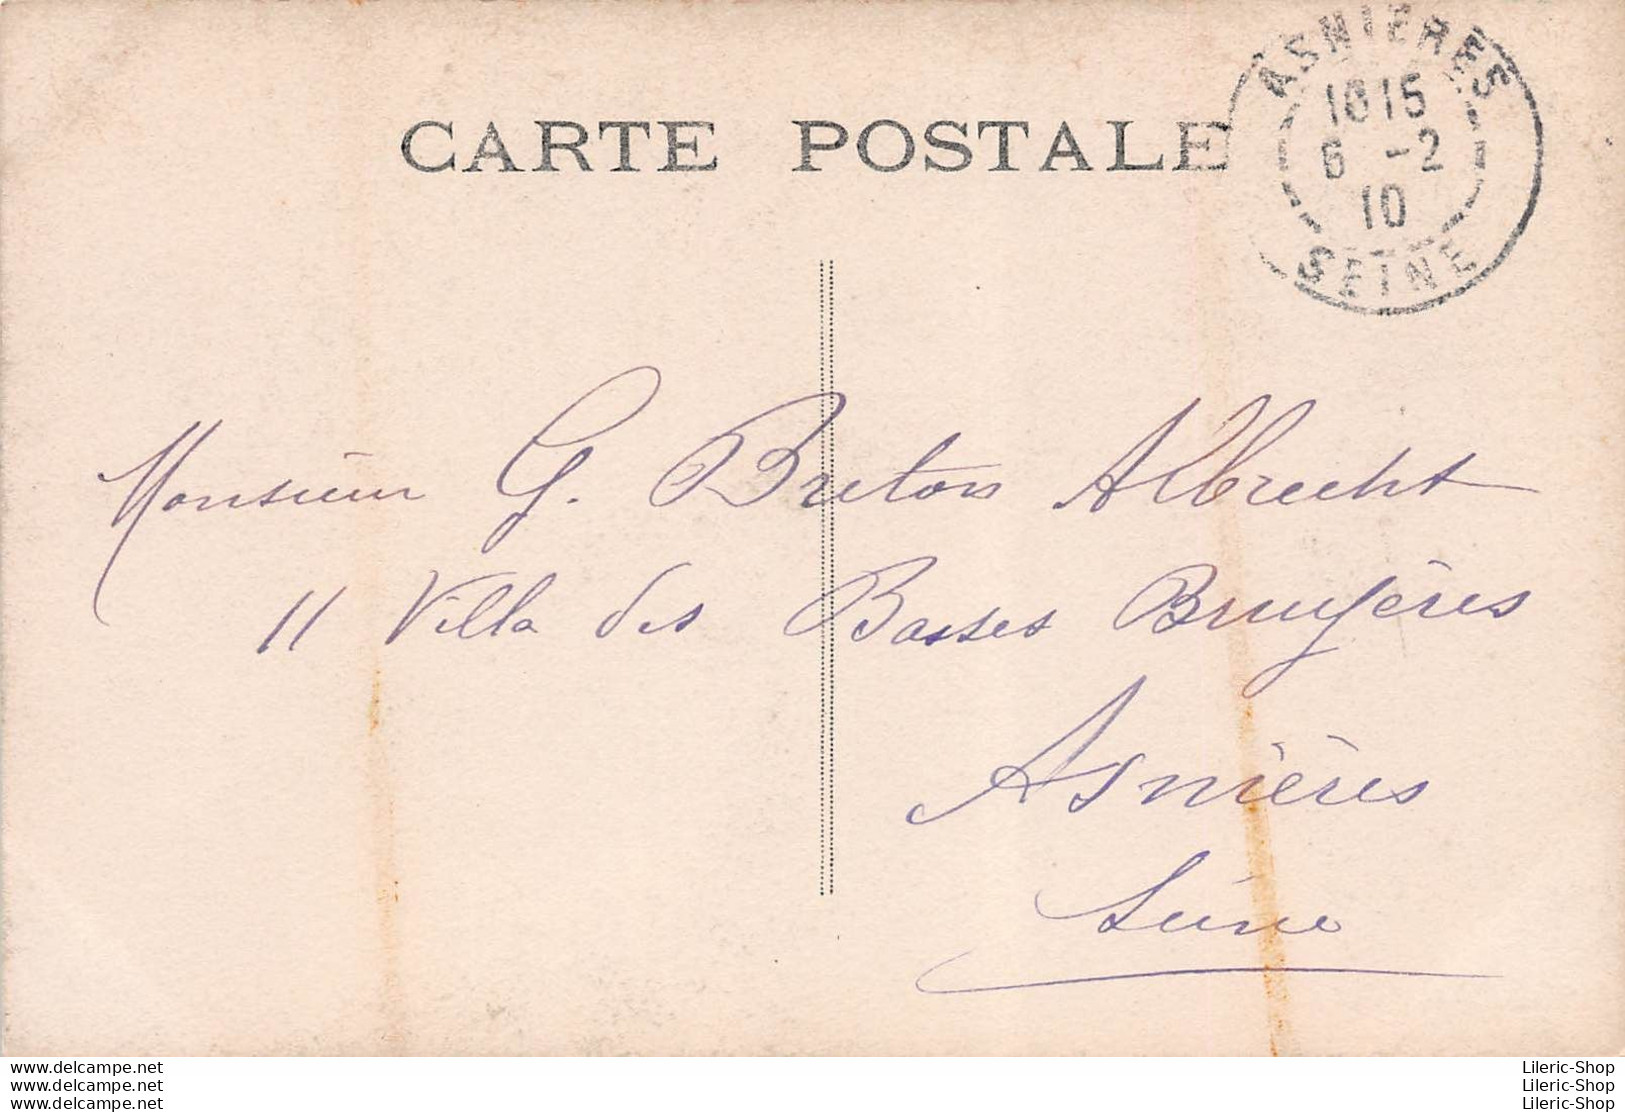 CARTE POSTALE
ASNIERES
1615
6 -2
10
SEINE
Monsieur G. Breton Albrecht
11 Villa des Basses Bruyères
Asnières
Seine
www.delcampe.net
www.delcampe.net
www.delcampe.net
Lileric-Shop
Lileric-Shop
Lileric-Shop